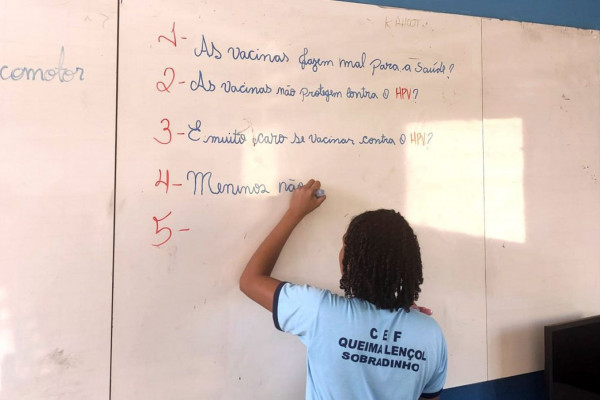 comotor
1- As vacinas fazem mal para a saúde?
2- As vacinas não protegem contra o HPV?
3- É muito caro se vacinar contra o HPV?
4- Meninos não
5-
CEF
QUEIMA LENÇOL
SOBRADINHO